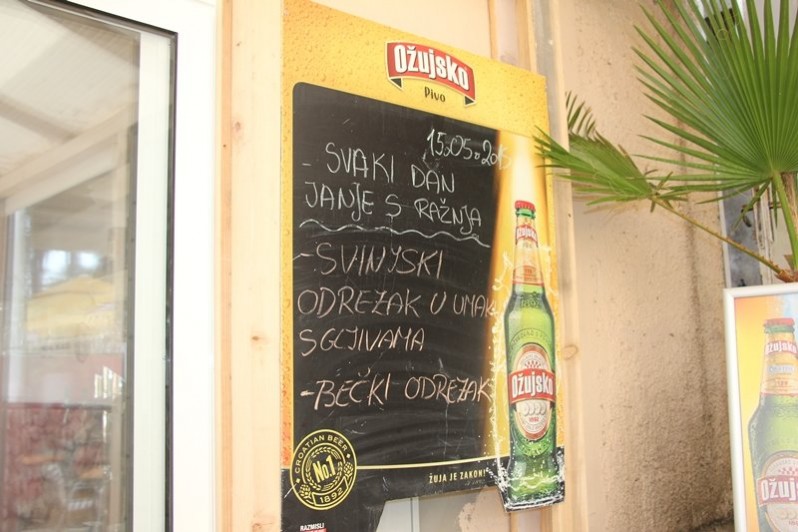 Ožujsko
Pivo
15.05.2015
- SVAKI DAN
JANJE S RAŽNJA
- SVINJSKI
ODREZAK U UMAKU
S GLJIVAMA
- BEČKI ODREZAK
Ožujsko
Ožujsko
CROATIAN BEER
No.1
1892
ŽUJA JE ZAKON!
RAZMISLI
Ožujsko
Ožujsko